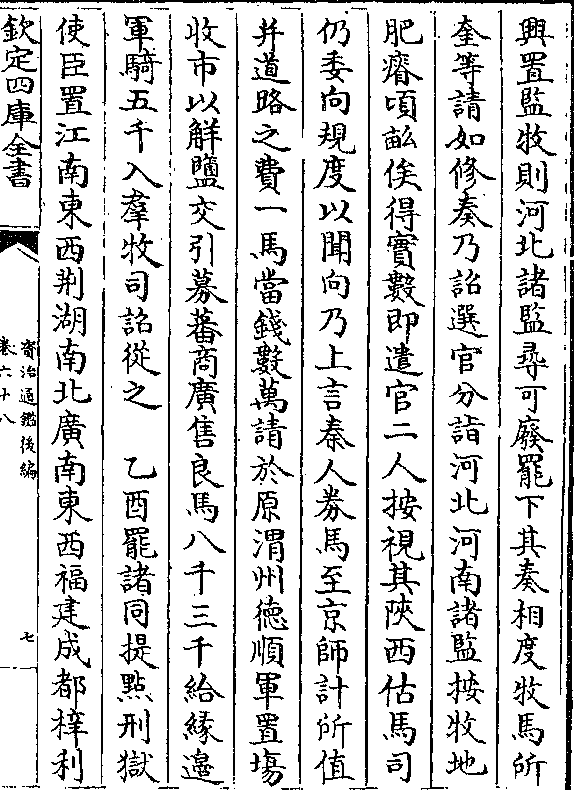 興置監牧則河北諸監尋可廢罷下其奏相度牧馬所
奎等請如修奏乃詔選官分詣河北河南諸監按牧地
肥瘠頃畝俟得實數即遣官二人按視其陜西估馬司
仍委向規度以聞向乃上言秦人劵馬至京師計所值
并道路之費一馬當錢數萬請於原渭州德順軍置場
收市以解鹽交引募蕃商廣售良馬八千三千給緣邉
軍騎五千入羣牧司詔從之　乙酉罷諸同提㸃刑獄
使臣置江南東西荆湖南北廣南東西福建成都梓利
欽定四庫全書
資治通鑑後編
卷六十八
七